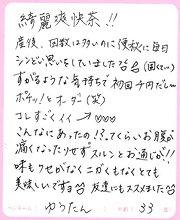 綺麗爽快茶!!
産後、回数は多いのに便秘に毎日
シンどい思いをしていました(固くてい)
すがるような気持ちで初回千円だし〜
ポチッ!とオーダー(笑)
コレすごくイイ
こんなにあったの!?ってくらいお腹が
痛くなったりせずスルンとお通じが!!
味もクセがなくニがくもなくとても
美味しいです 友達にもススメました
ペンネーム: ゆうたん 年齢: 33 歳